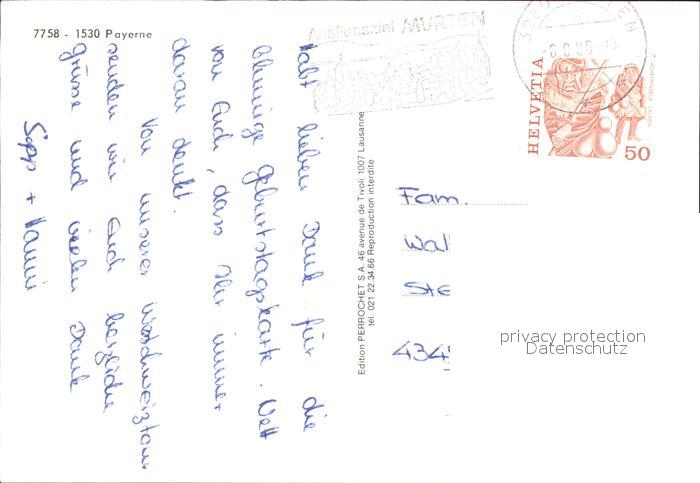 7758 - 1530 Payerne
Ausflugsziel MURTEN
HELVETIA
50
habt lieben Dank für die
blumige Geburtstagskarte. Nett
von Euch, dass Ihr immer
daran denkt.
Von unserer Westschweiztour
senden wir Euch herzliche
grüsse und vielen Dank
Sepp + Nanni
Edition PERROCHET S.A. 46 avenue de Tivoli 1007 Lausanne
tél. 021 22.34.66 Reproduction interdite
Fam.
Wal
Ste
434
privacy protection
Datenschutz